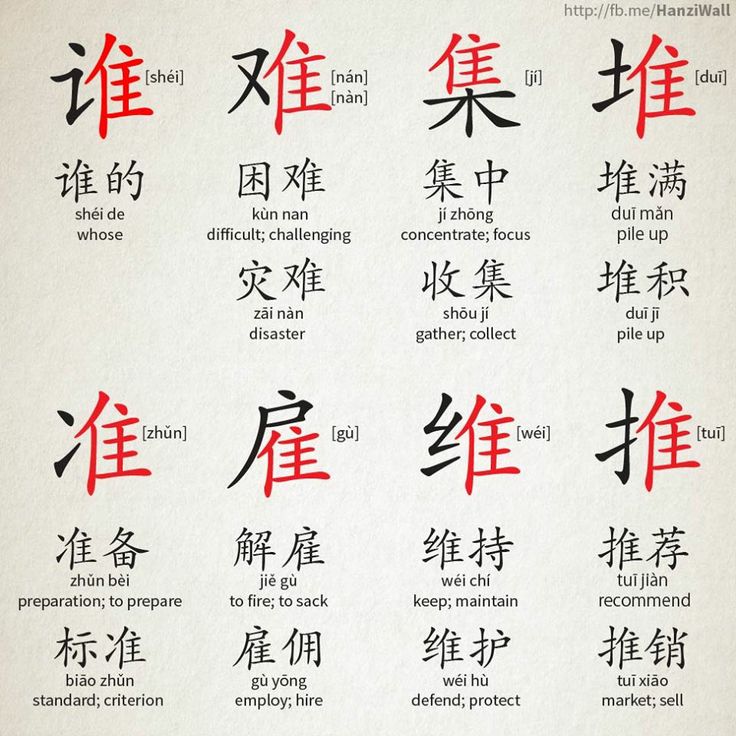 http://fb.me/HanziWall
谁 [shéi] 难 [nán] [nàn] 集 [jí] 堆 [duī]
谁的 困难 集中 堆满
shéi de kùn nan jí zhōng duī mǎn
whose difficult; challenging concentrate; focus pile up
灾难 收集 堆积
zāi nàn shōu jí duī jī
disaster gather; collect pile up
准 [zhǔn] 雇 [gù] 维 [wéi] 推 [tuī]
准备 解雇 维持 推荐
zhǔn bèi jiě gù wéi chí tuī jiàn
preparation; to prepare to fire; to sack keep; maintain recommend
标准 雇佣 维护 推销
biāo zhǔn gù yōng wéi hù tuī xiāo
standard; criterion employ; hire defend; protect market; sell